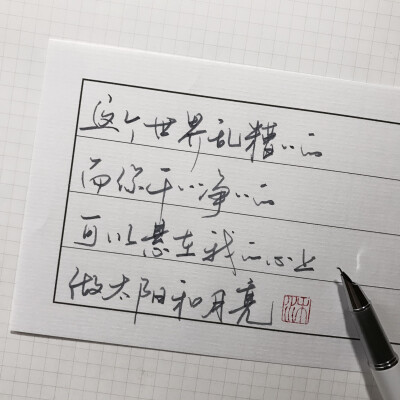 这个世界乱糟糟的
而你干干净净的
可以悬在我的心上
做太阳和月亮